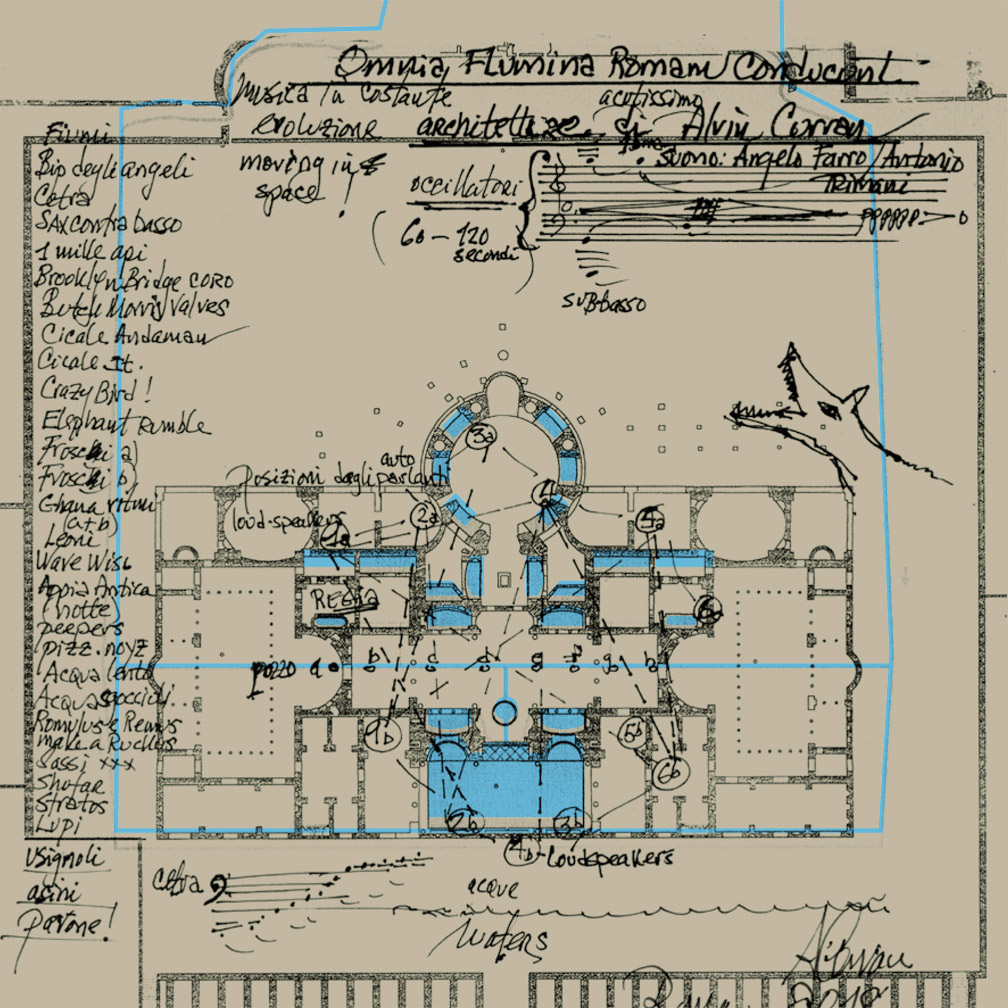 Omnia Flumina Romam Conducunt
musica in costante
evoluzione
moving in
space!
acutissimo
architetture di Alvin Curran
Suono: Angelo Farro / Antonio
Trimani
occillatori
60 - 120
secondi
fff
pppppp o
subbasso
Fiumi
Bip degli angeli
Cetra
SAX contrabasso
1 mille api
Brooklyn Bridge coro
Butch Morris/Valves
Cicale Andaman
Cicale It.
Crazy Bird!
Elephant Rumble
Froschi a)
Froschi b)
Ghana ritmi
(a+b)
Leoni
Wave Wisc
Appia Antica
(notte)
peepers
pizz. noyz
Acqua lenta
Acqua goccioli..
Romulus e Remus
make a Ruckus
Sassi xxx
Shofar
Stratos
Lupi
Usignoli
asini
pavone!
Posizioni degli auto parlanti
loud-speakers
1a
2a
3a
4a
REGIA
6a
pozzo a b c d e f g h
1b
2b
3b
5b
6b
4b - loudspeakers
cetra
acque
waters